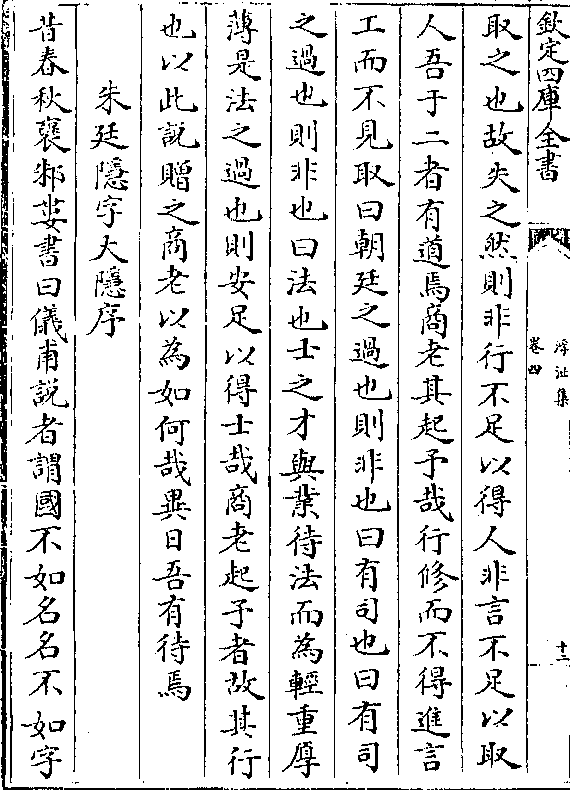 欽定四庫全書
浮沚集
卷四
十三
取之也故失之然則非行不足以得人非言不足以取
人吾于二者有道焉商老其起予哉行修而不得進言
工而不見取曰朝廷之過也則非也曰有司也曰有司
之過也則非也曰法也士之才與業待法而為輕重厚
薄是法之過也則安足以得士哉商老起予者故其行
也以此說贈之商老以為如何哉異日吾有待焉
朱廷隱字大隱序
昔春秋褒邾婁書曰儀甫說者謂國不如名名不如字